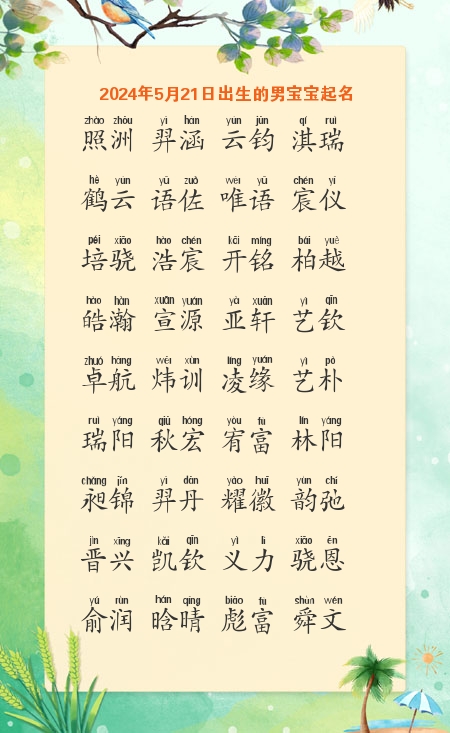 2024年5月21日出生的男宝宝起名
zhào zhōu yì hán yún jūn qí ruì
照洲 羿涵 云钧 淇瑞
hè yún yǔ zuǒ wéi yǔ chén yí
鹤云 语佐 唯语 宸仪
péi xiāo hào chén kāi míng bǎi yuè
培骁 浩宸 开铭 柏越
hào hàn xuān yuán yà xuān yì qīn
皓瀚 宣源 亚轩 艺钦
zhuó háng wěi xùn líng yuán yì pǔ
卓航 炜训 凌缘 艺朴
ruì yáng qiū hóng yòu fù lín yáng
瑞阳 秋宏 宥富 林阳
chǎng jǐn yì dān yào huī yùn chí
昶锦 羿丹 耀徽 韵弛
jìn xīng kǎi qīn yì lì xiāo ēn
晋兴 凯钦 义力 骁恩
yú rùn hán qíng biāo fù shùn wén
俞润 晗晴 彪富 舜文